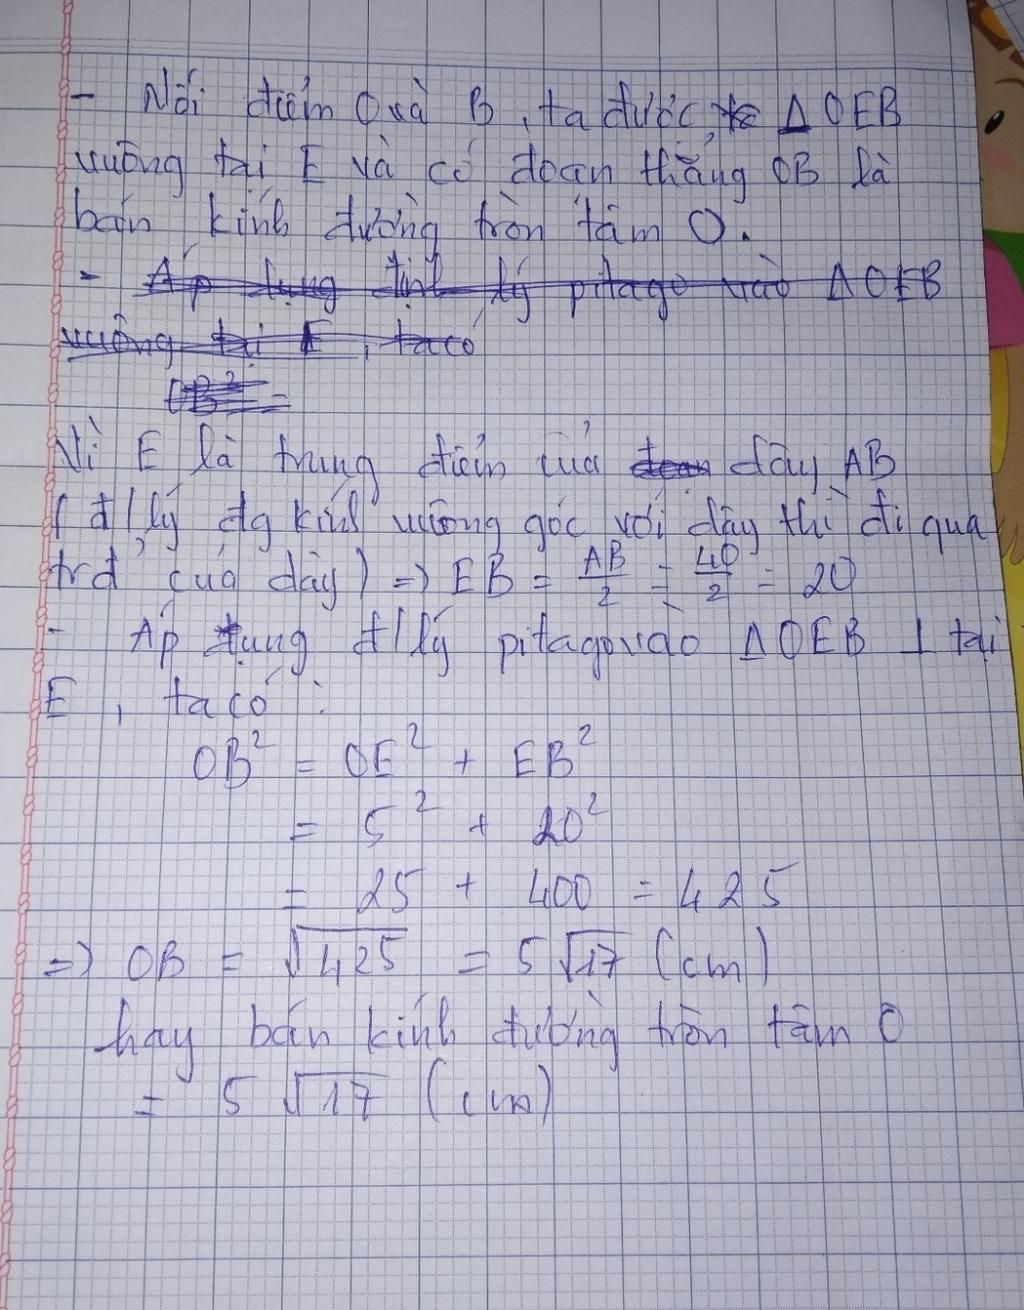 - Nối điểm O và B, ta được ΔOEB
vuông tại E và có đoạn thẳng OB là
bán kính đường tròn tâm O.
- Áp dụng định lý pitago vào ΔOEB
vuông tại E, ta có
OB² =
Vì E là trung điểm của dây AB
(đ/lý đg kính vuông góc với dây thì đi qua
trđ của dây) => EB = AB/2 = 40/2 = 20
- Áp dụng đ/lý pitago vào ΔOEB ⊥ tại
E, ta có:
OB² = OE² + EB²
= 5² + 20²
= 25 + 400 = 425
=> OB = √425 = 5√17 (cm)
hay bán kính đường tròn tâm O
= 5√17 (cm)